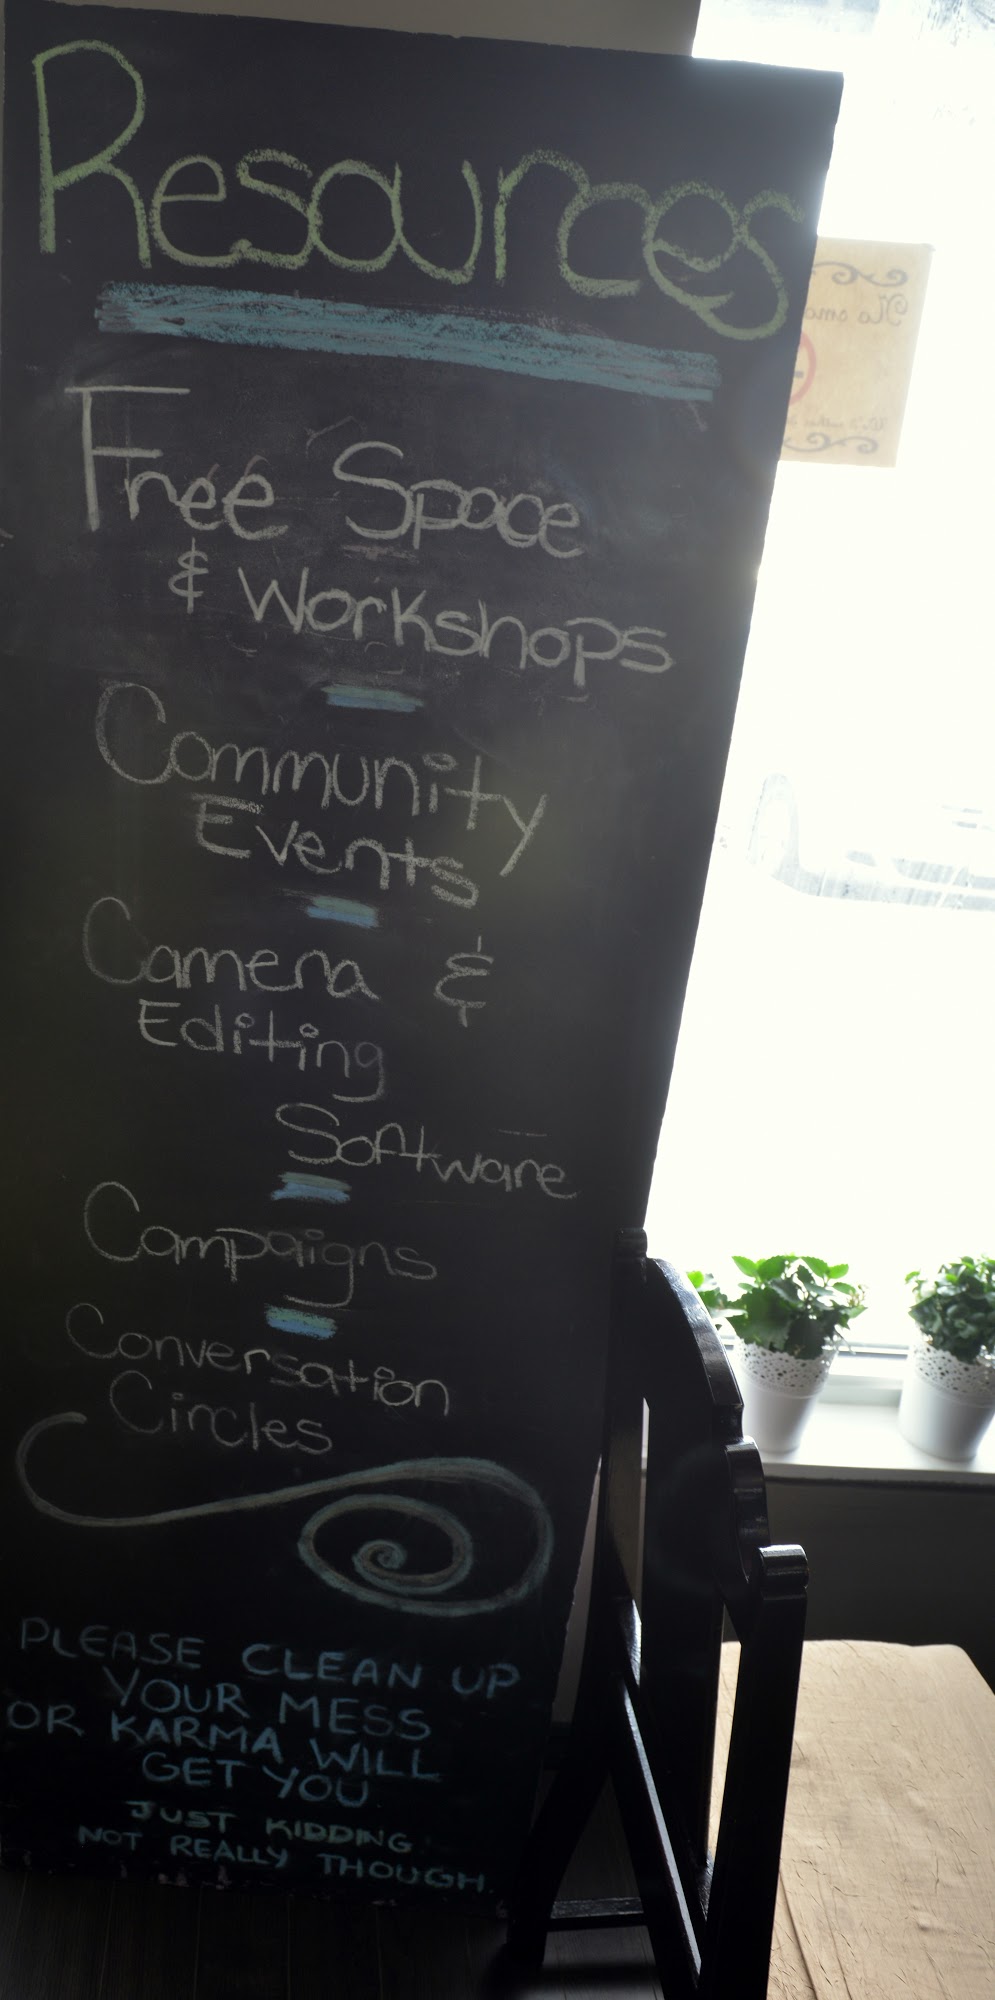 Resources
Free Space
& Workshops
Community
Events
Camera &
Editing
Software
Campaigns
Conversation
Circles
PLEASE CLEAN UP
YOUR MESS
OR KARMA WILL
GET YOU
JUST KIDDING
NOT REALLY THOUGH.
No smo